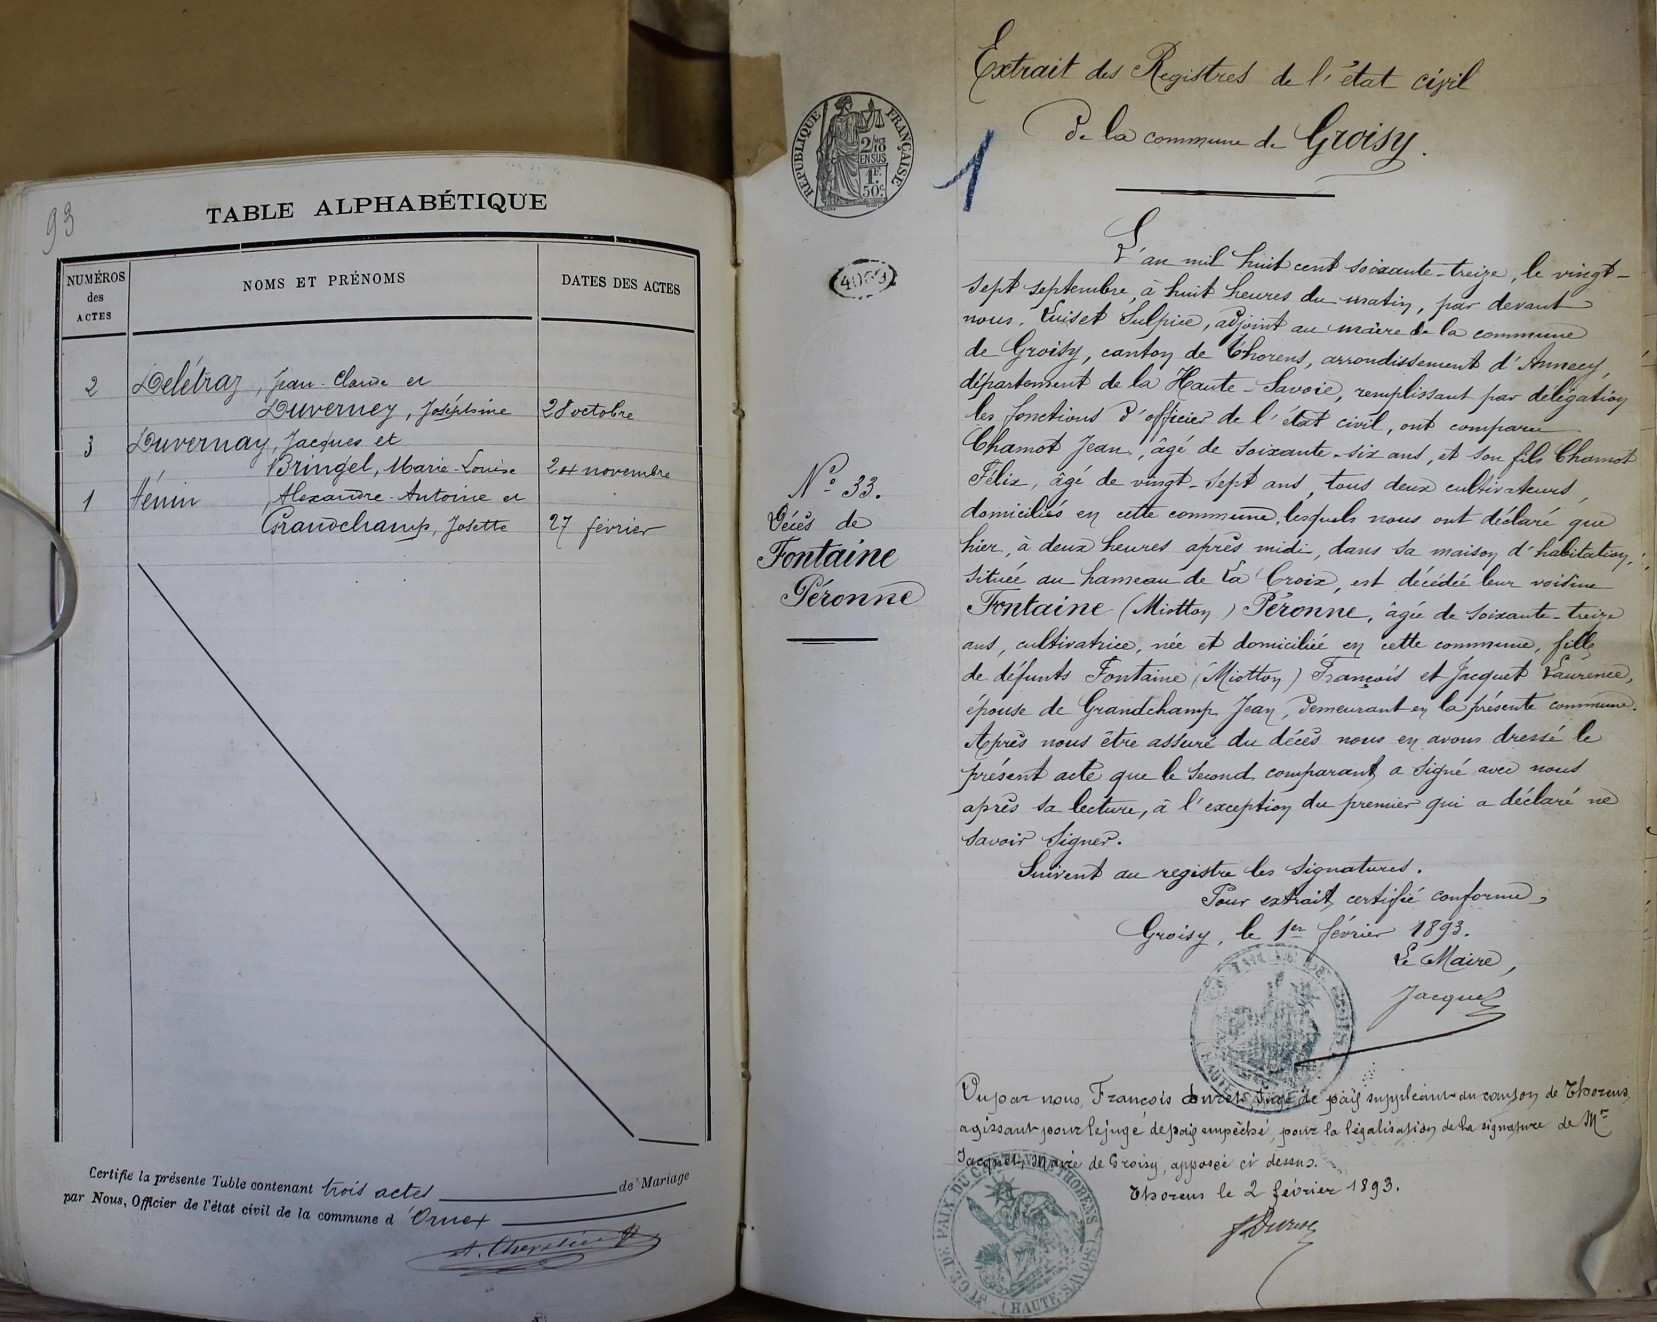 93
TABLE ALPHABÉTIQUE
NUMÉROS des ACTES
NOMS ET PRÉNOMS
DATES DES ACTES
2 Delétraz, Jean-Claude et
Duverney, Joséphine 28 octobre
3 Duvernay, Jacques et
Bringel, Marie-Louise 24 novembre
1 Hénin Alexandre-Antoine et
Grandchamp, Josette 27 février
Certifie la présente Table contenant trois actes de Mariage
par Nous, Officier de l'état civil de la commune d'Ornex
Extrait des Registres de l'état civil
De la commune de Groisy.
RÉPUBLIQUE FRANÇAISE
2/10 EN SUS
1F 50c
1
N° 33.
Décès de
Fontaine
Péronne
L'an mil huit cent soixante-treize, le vingt-
sept septembre, à huit heures du matin, par devant
nous, Luiset Sulpice, adjoint au maire de la commune
de Groisy, canton de Thorens, arrondissement d'Annecy,
département de la Haute-Savoie, remplissant par délégation
les fonctions d'officier de l'état civil, ont comparu
Chamot Jean, âgé de soixante-six ans, et son fils Chamot
Félix, âgé de vingt-sept ans, tous deux cultivateurs,
domiciliés en cette commune, lesquels nous ont déclaré que
hier, à deux heures après midi, dans sa maison d'habitation,
située au hameau de La Croix, est décédée leur voisine
Fontaine (Miotton) Péronne, âgée de soixante-treize
ans, cultivatrice, née et domiciliée en cette commune, fille
de défunts Fontaine (Miotton) François et Jacquet Laurence,
épouse de Grandchamp Jean, demeurant en la présente commune.
Après nous être assuré du décès nous en avons dressé le
présent acte que le second comparant a signé avec nous
après sa lecture, à l'exception du premier qui a déclaré ne
savoir signer.
Suivent au registre les signatures.
Pour extrait certifié conforme,
Groisy, le 1er février 1893.
Le Maire,
Jacquet
Vu par nous, François Duret, Juge de paix suppléant du canton de Thorens,
agissant pour le juge de paix empêché, pour la légalisation de la signature de Mr
Jacquet, Maire de Groisy, apposée ci dessus.
Thorens le 2 février 1893.
F. Duret
JUGE DE PAIX DU CANTON DE THORENS (HAUTE-SAVOIE)